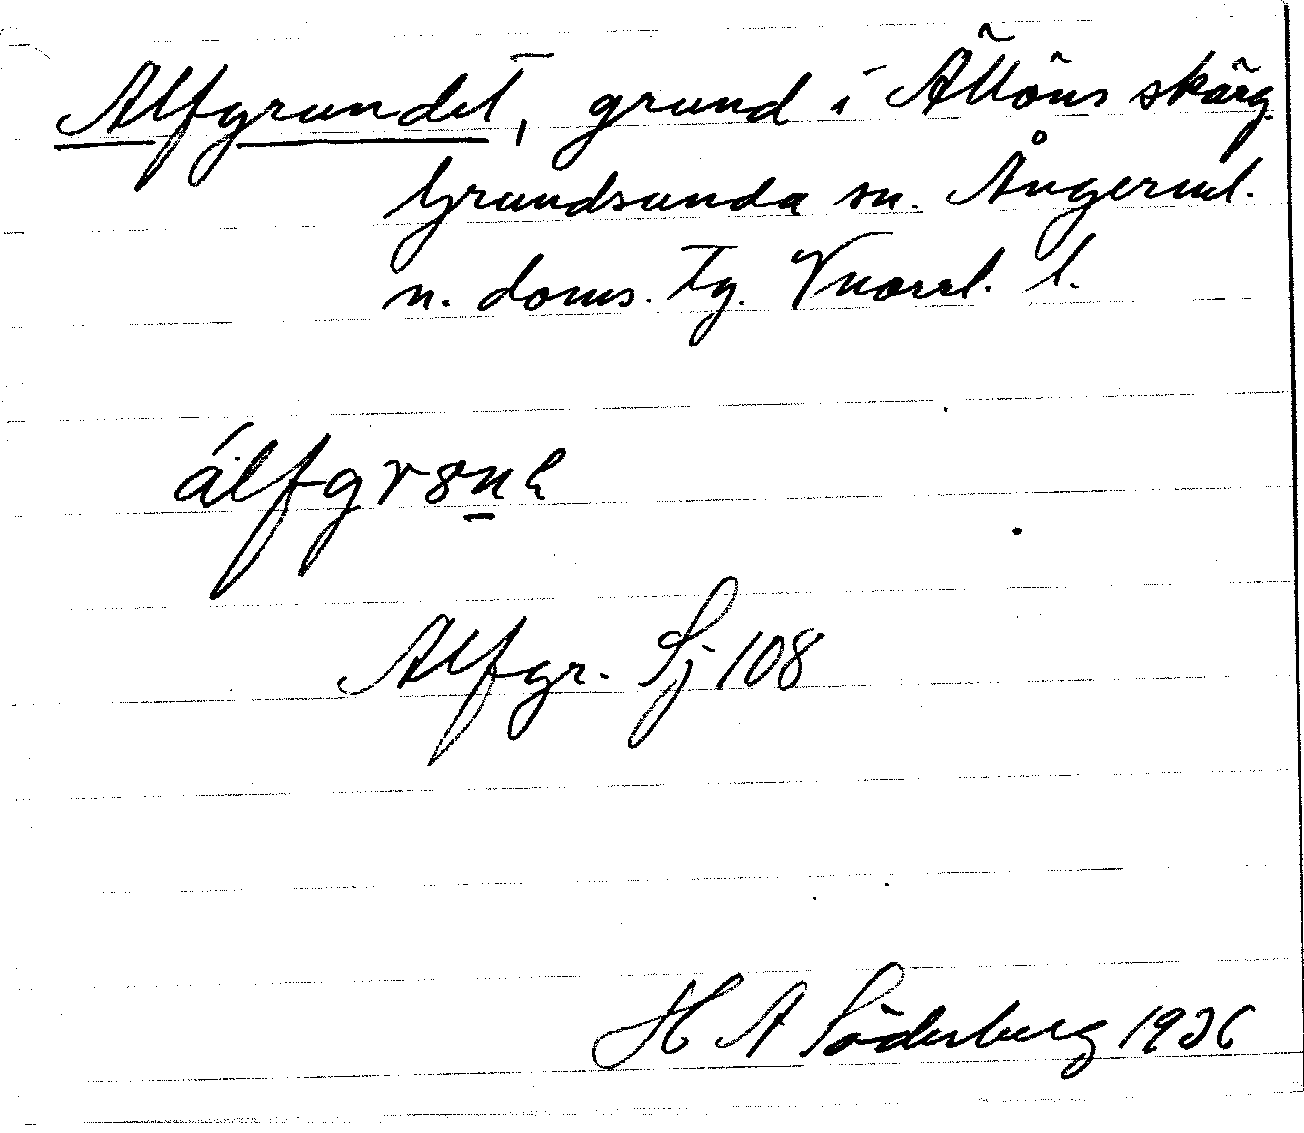 Alfgrundet, grund i Ällöns skärg.
Grundsunda sn. Ångerml.
n. doms. tg. Vnorrl. l.
álfgrənn
Alfgr. Sj 108
H A Söderberg 1936